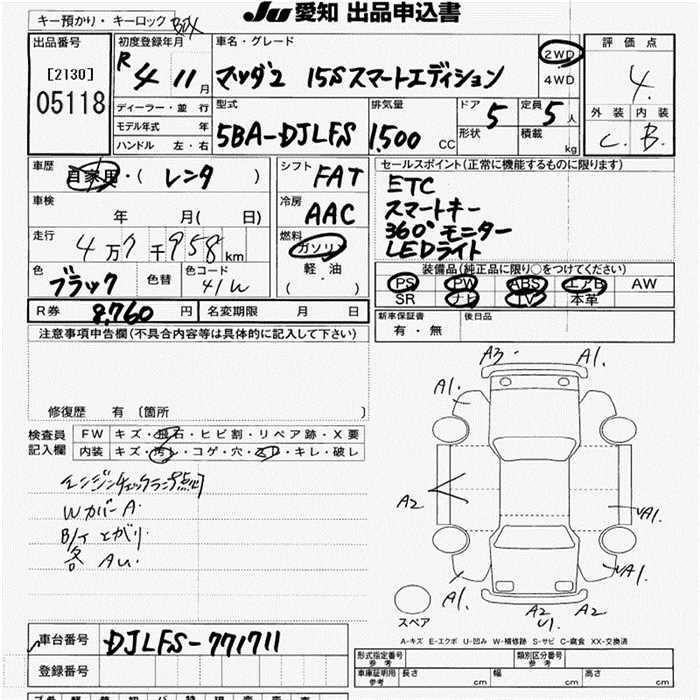 JU 愛知 出品申込書
キー預かり・キーロック BOX
出品番号
[2130]
05118
初度登録年月
R 4 11月
車名・グレード
マツダ2 15Sスマートエディション
2WD
4WD
評価点
4.
外装 内装
C. B.
ディーラー・並行
モデル年式 年
ハンドル 左・右
型式
5BA-DJLFS
排気量
1,500 CC
ドア 5
形状
定員 5人
積載 kg
車歴
自家用・( レンタ )
車検
年 月( 日)
走行
4万7千958km
色
ブラック
色替
色コード
41W
シフト FAT
冷房 AAC
燃料
ガソリン
軽・油
( ・ )
セールスポイント(正常に機能するものに限ります)
ETC
スマートキー
360°モニター
LEDライト
装備品(純正品に限り○をつけてください)
PS PW ABS エアB AW
SR ナビ TV 本革
R券 8,760円 名変期限 月 日
新車保証書
有・無
後日品
注意事項申告欄(不具合内容等は具体的に記入して下さい)
修復歴 有 〔箇所 〕
検査員
記入欄
FW キズ・飛石・ヒビ割・リペア跡・X要
内装 キズ・汚レ・コゲ・穴・スレ・キレ・破レ
エンジンチェックランプ点灯
WカバーA.
各 AU.
A3 A1.
A1.
A2
A1.
A1.
A1.
A2 A2
U1
スペア
A-キズ E-エクボ U-凹み W-補修跡 S-サビ C-腐食 XX-交換済
車台番号 DJLFS-771711
登録番号
形式指定番号
参考
類別区分番号
参考
車庫証明用
参考
長さ cm 幅 cm 高さ cm